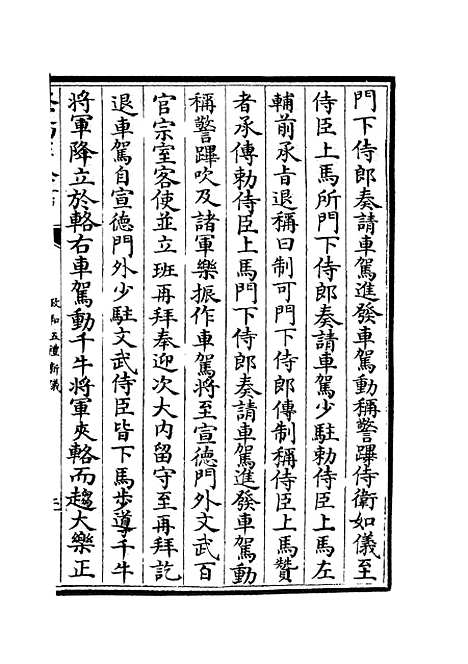 門下侍郎奏請車駕進發車駕動稱警蹕侍衛如儀至
侍臣上馬所門下侍郎奏請車駕少駐勅侍臣上馬左
輔前承㫖退稱曰制可門下侍郎傳制稱侍臣上馬贊
者承傳勅侍臣上馬門下侍郎奏請車駕進發車駕動
稱警蹕鼓吹及諸軍樂振作車駕將至宣德門外文武百
官宗室客使並立班再拜奉迎次大内留守至再拜訖
退車駕自宣德門外少駐文武侍臣皆下馬步導千牛
將軍降立於輅右車駕動千牛將軍夾輅而趨大樂正
政和五禮新儀